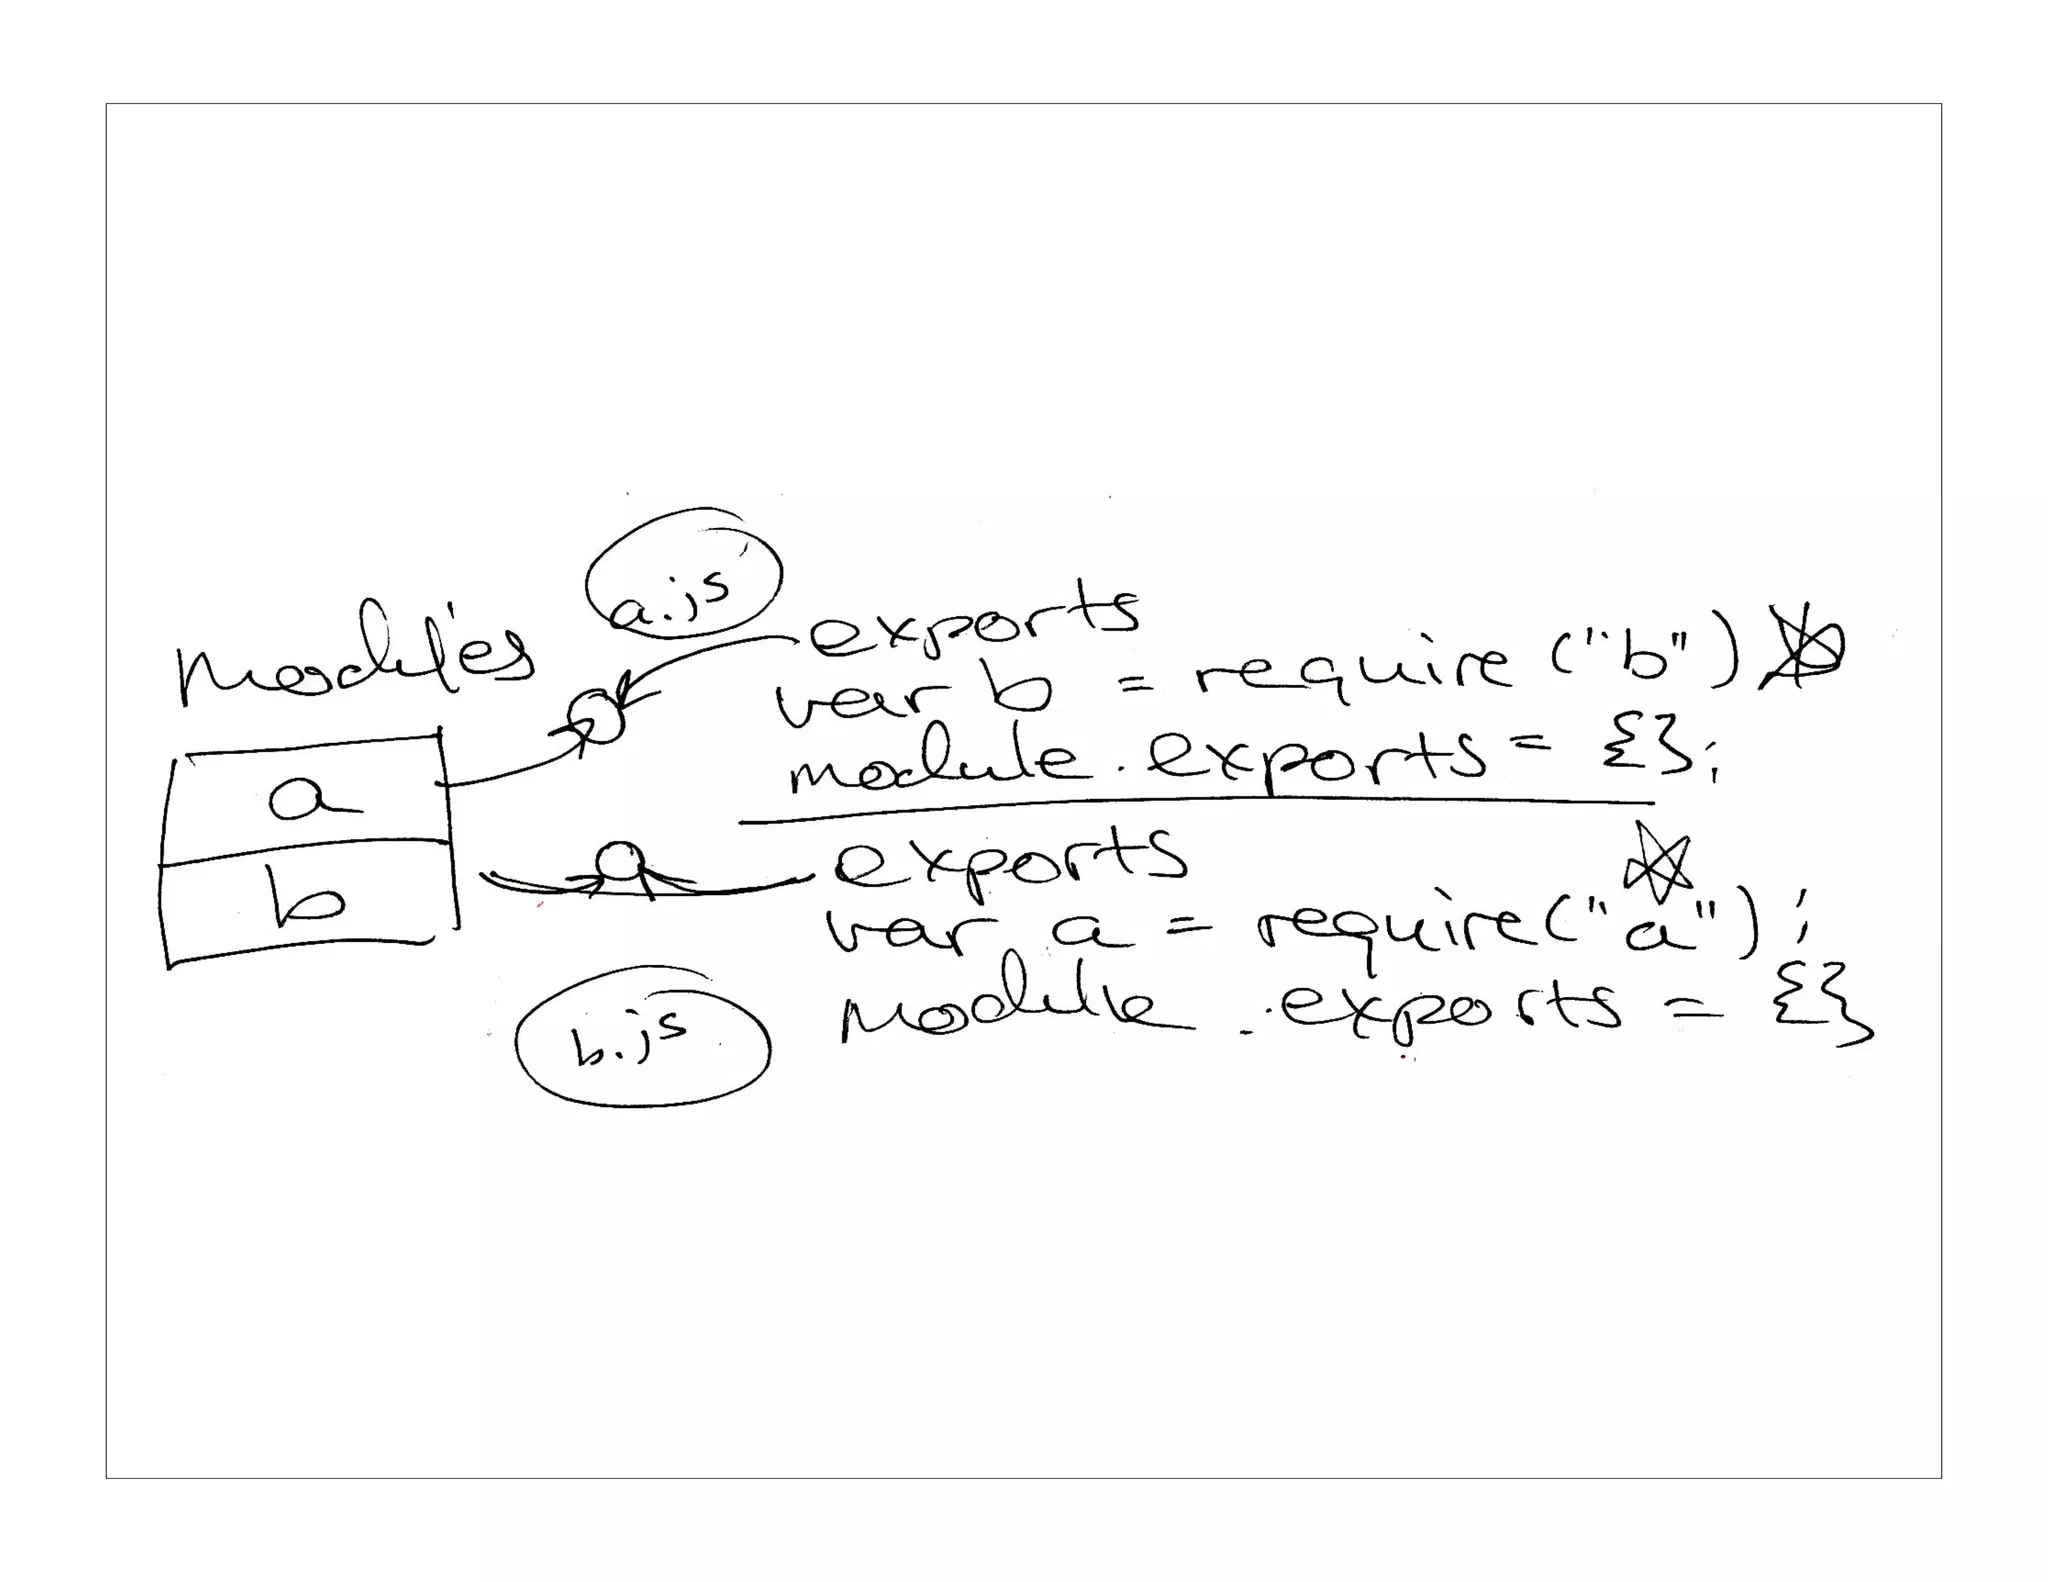 modules
a
b
a.js
exports
var b = require ("b")
module.exports = {};
exports
var a = require("a");
module.exports = {}
b.js